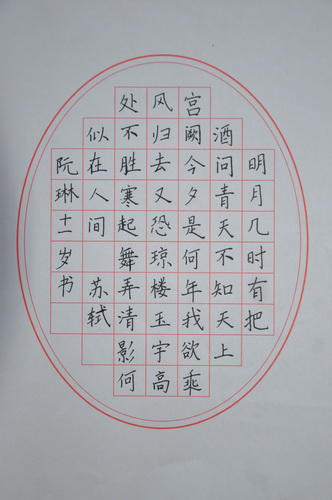 明月几时有把
酒问青天不知天上
宫阙今夕是何年我欲乘
风归去又恐琼楼玉宇高
处不胜寒起舞弄清影何
似在人间 苏轼
阮琳十一岁书